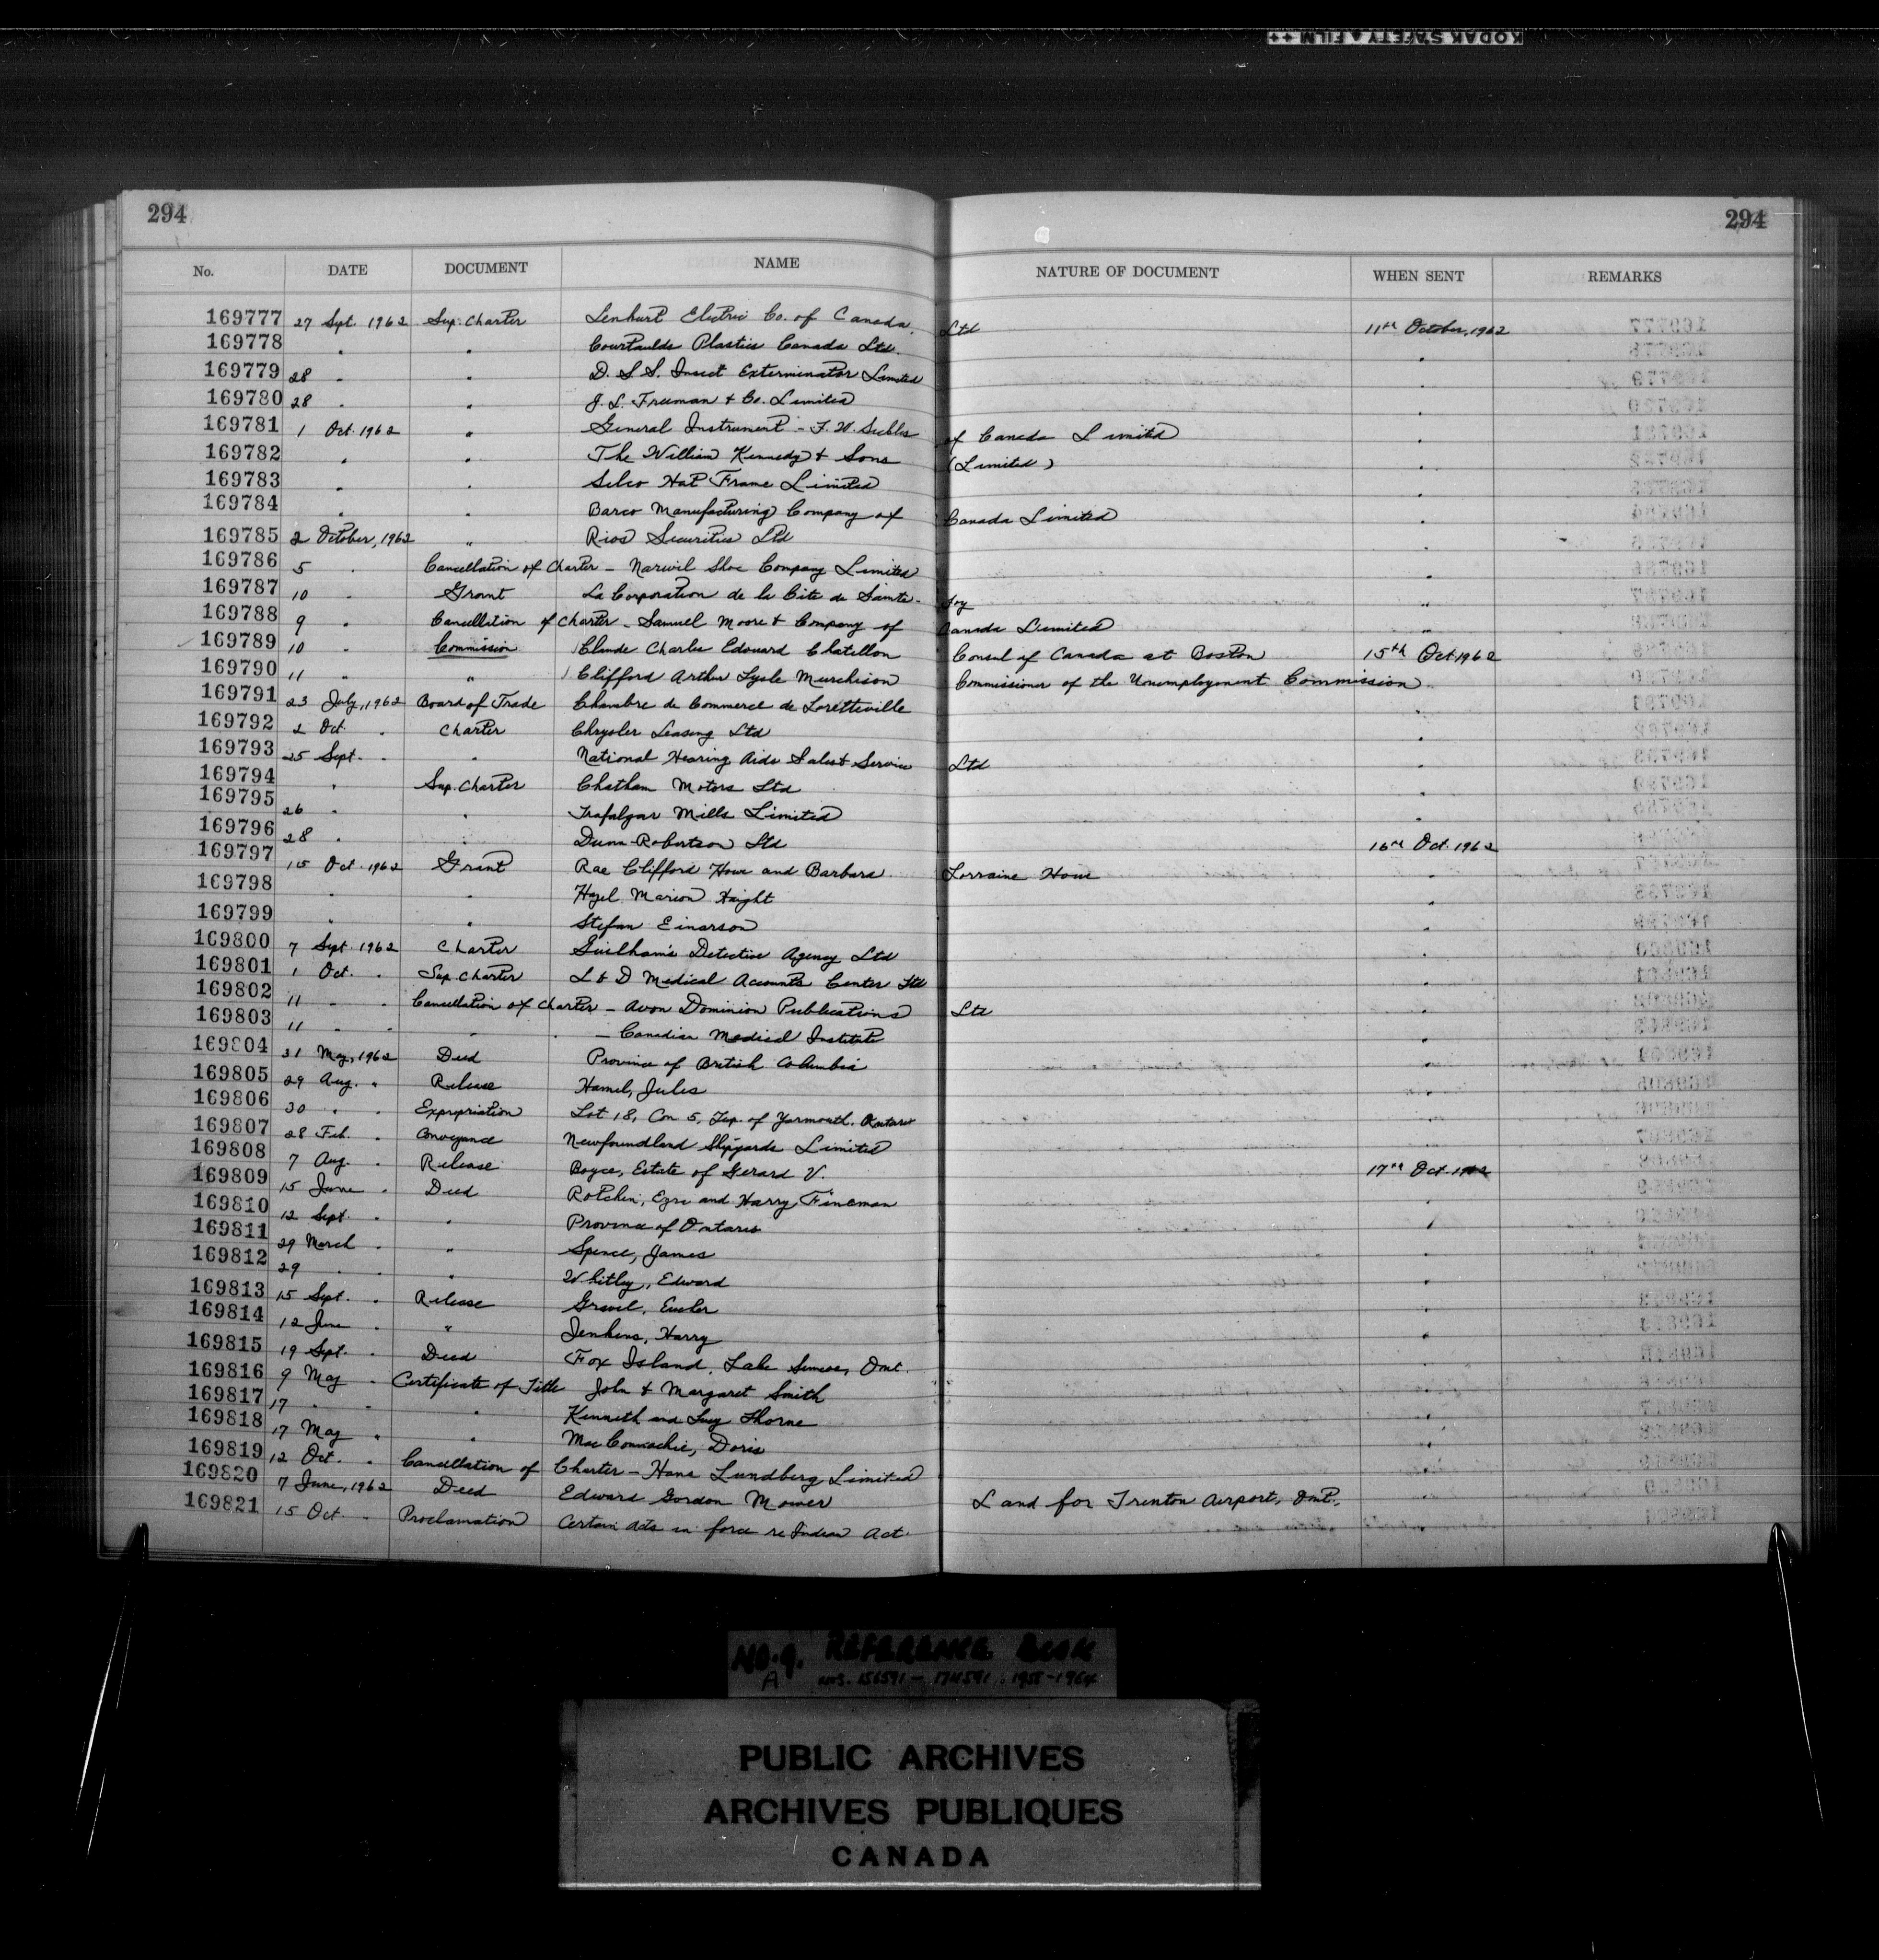 KODAK SAFETY FILM
294 294
No. DATE DOCUMENT NAME NATURE OF DOCUMENT WHEN SENT REMARKS
169777 27 Sept. 1962 Sup. Charter Lenkurt Electric Co. of Canada, Ltd 11th October, 1962
169778 " " Courtaulds Plastics Canada Ltd. "
169779 28 " " D. S. S. Insect Exterminator Limited "
169780 28 " " J. L. Freeman & Co. Limited "
169781 1 Oct. 1962 " General Instrument - F. W. Sickles of Canada Limited "
169782 " " The William Kennedy & Sons (Limited) "
169783 " " Selco Hat Frame Limited "
169784 " " Barco Manufacturing Company of Canada Limited "
169785 2 October, 1962 " Rios Securities Ltd
169786 5 " Cancellation of Charter - Narwil Shoe Company Limited "
169787 10 " Grant La Corporation de la Cite de Sainte-Foy "
169788 9 " Cancellation of Charter - Samuel Moore & Company of Canada Limited "
169789 10 " Commission Claude Charles Edouard Chatillon Consul of Canada at Boston 15th Oct. 1962
169790 11 " " Clifford Arthur Lysle Murchison Commissioner of the Unemployment Commission
169791 23 July, 1962 Board of Trade Chambre de Commerce de Loretteville "
169792 2 Oct. " Charter Chrysler Leasing Ltd "
169793 25 Sept. " " National Hearing Aids Sales & Service Ltd "
169794 " Sup. Charter Chatham Motors Ltd "
169795 26 " " Trafalgar Mills Limited "
169796 28 " " Dunn-Robertson Ltd 16th Oct. 1962
169797 15 Oct. 1962 Grant Rae Clifford Howe and Barbara Lorraine Howe "
169798 " " Hazel Marion Haight "
169799 " " Stefan Einarson "
169800 7 Sept. 1962 Charter Guilham's Detective Agency Ltd "
169801 1 Oct. " Sup. Charter L & D Medical Accounts Center Ltd "
169802 11 " " Cancellation of Charter - Avon Dominion Publications Ltd "
169803 11 " " " - Canadian Medical Institute "
169804 31 May, 1962 Deed Province of British Columbia "
169805 29 Aug. " Release Hamel, Jules "
169806 30 " " Expropriation Lot 18, Con 5, Twp. of Yarmouth, Ontario "
169807 28 Feb. " Conveyance Newfoundland Shipyards Limited "
169808 7 Aug. " Release Boyce, Estate of Gerard V. 17th Oct. 1962
169809 15 June " Deed Rotchin, Ezra and Harry Fineman "
169810 12 Sept. " " Province of Ontario "
169811 29 March " " Spence, James "
169812 29 " " " Whitley, Edward "
169813 15 Sept. " Release Gravel, "
169814 12 June " " Jenkins, Harry "
169815 19 Sept. " Deed Fox Island, Lake Simcoe, Ont. "
169816 9 May " Certificate of Title John & Margaret Smith "
169817 17 " " " Kenneth and Lucy Thorne "
169818 17 May " " MacConnachie, Doris "
169819 12 Oct. " Cancellation of Charter - Hans Lundberg Limited "
169820 7 June, 1962 Deed Edward Gordon Mower Land for Trenton Airport, Ont. "
169821 15 Oct. " Proclamation Certain Acts in force re Indian Act. "
NO. 9. REFERENCE BOOK
A nos. 156591 - 174591 . 1955-1964
PUBLIC ARCHIVES
ARCHIVES PUBLIQUES
CANADA